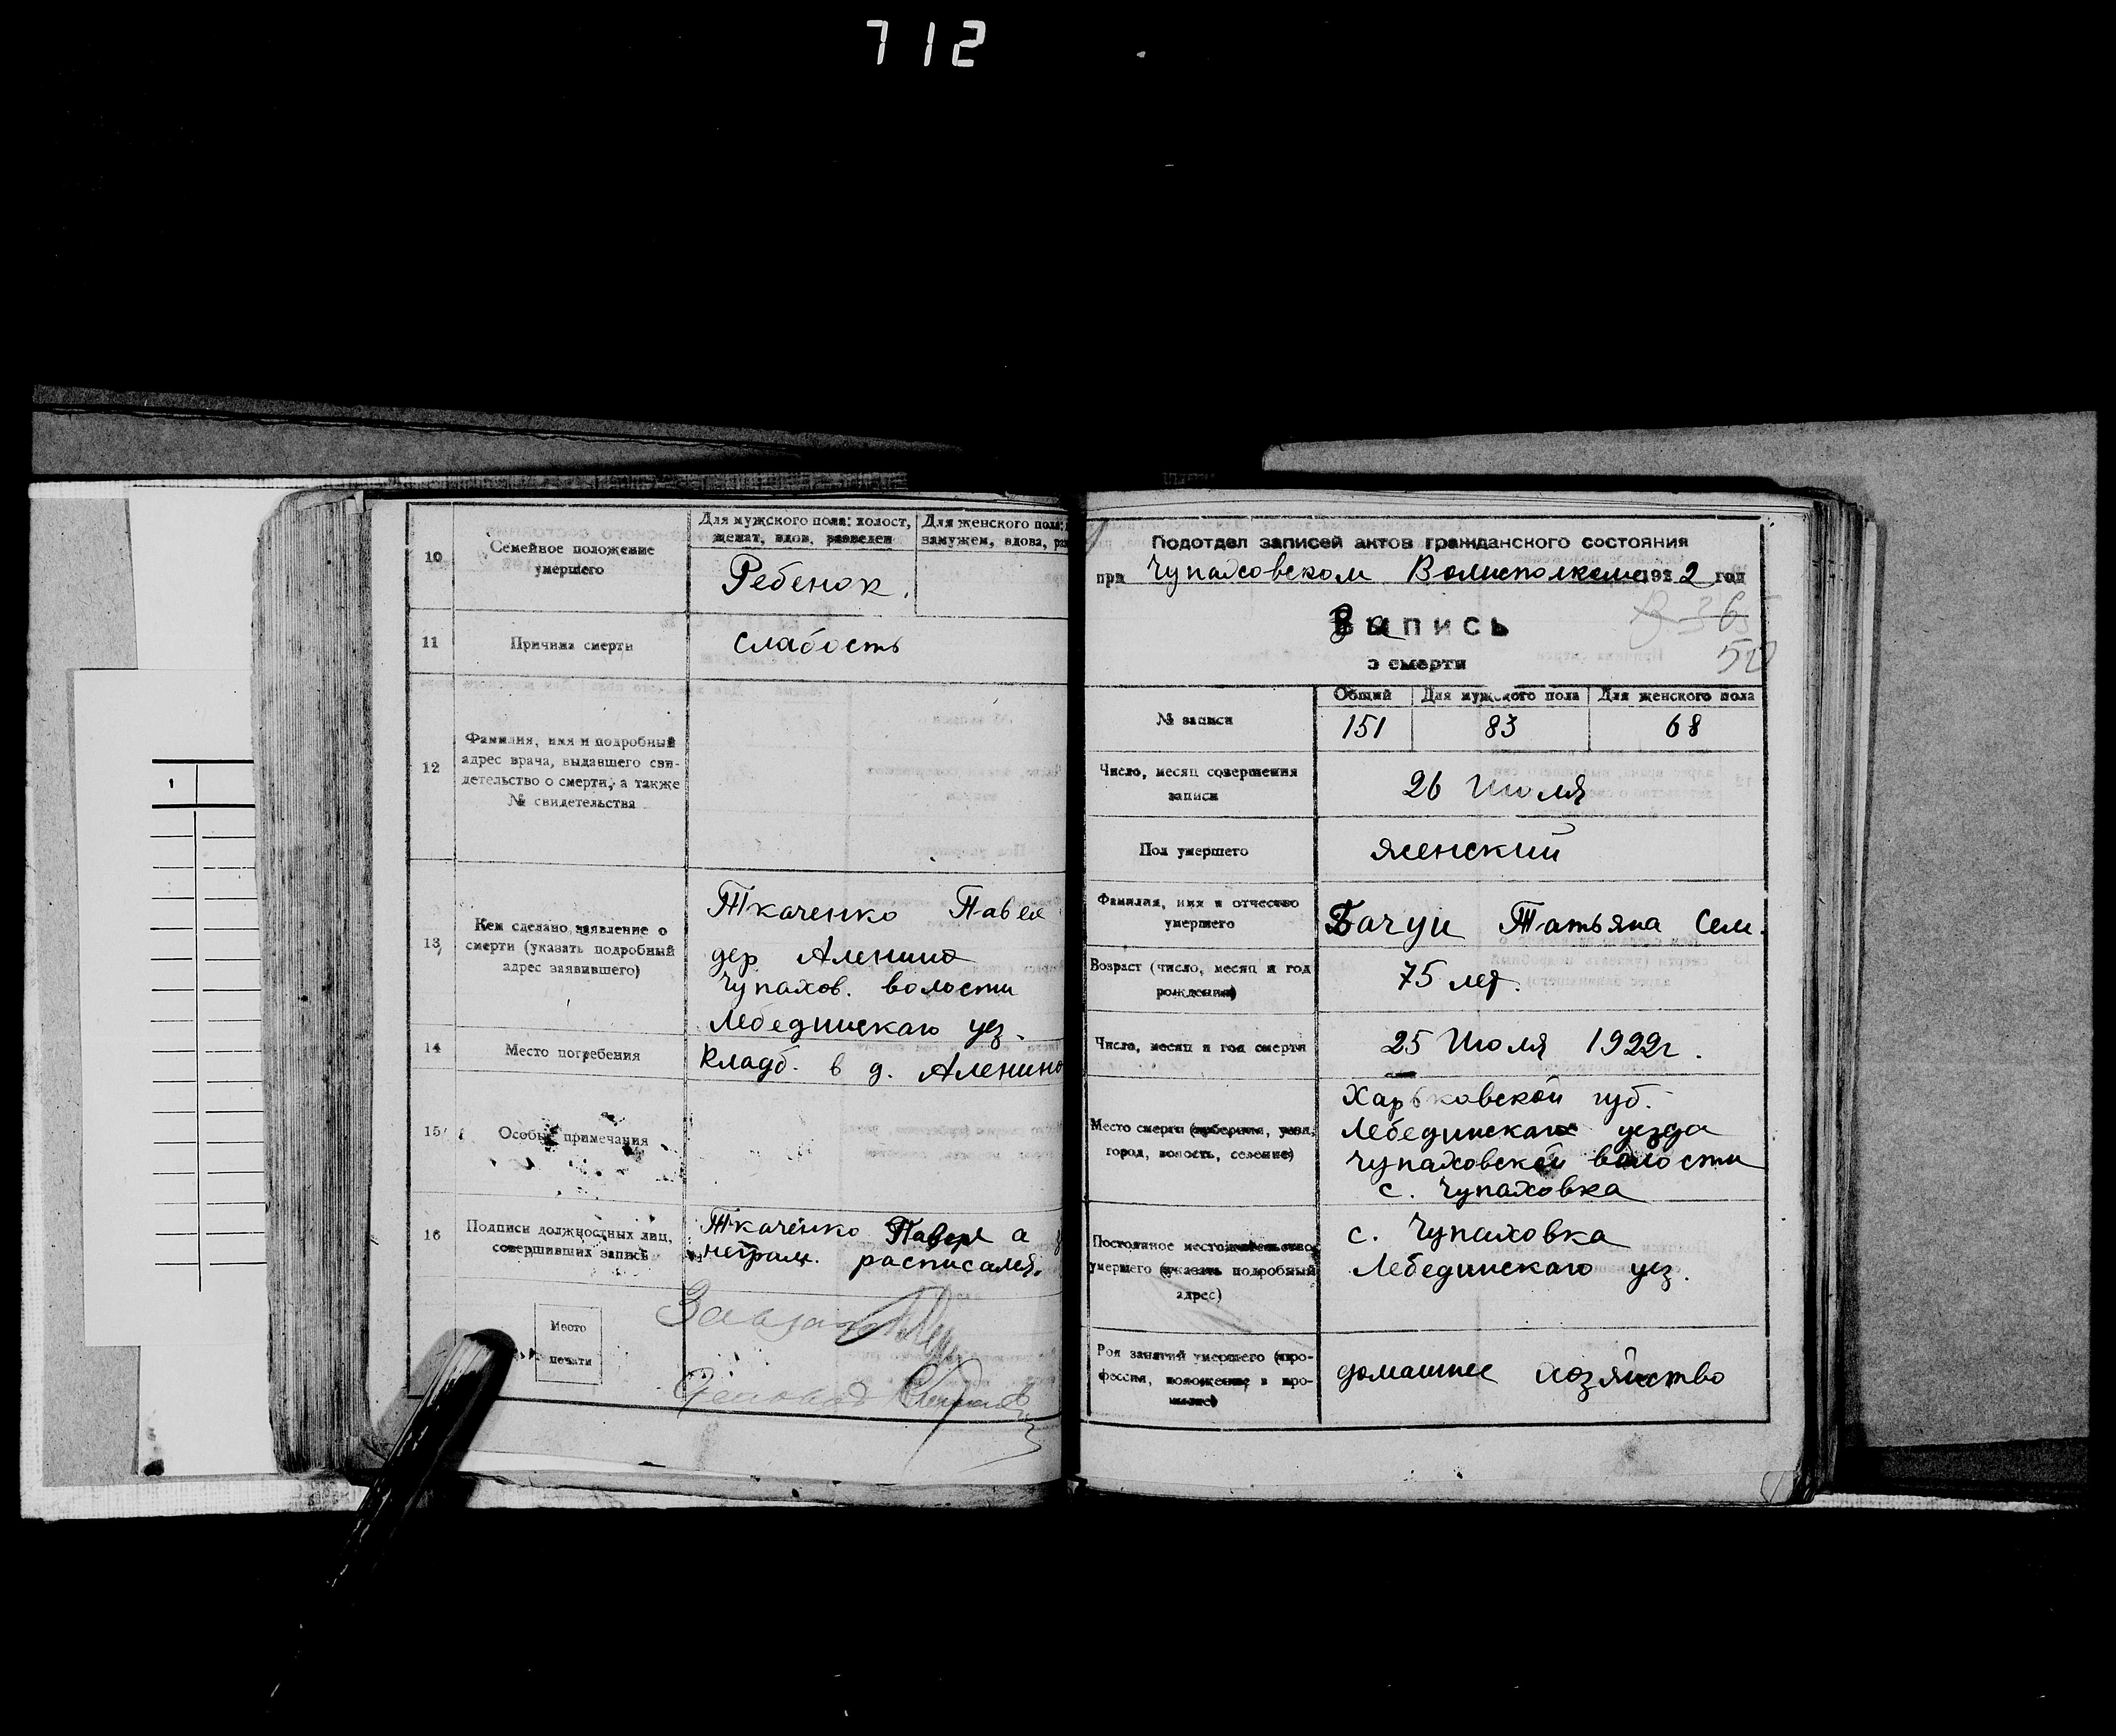 712
10
Семейное положение
умершего
Для мужского пола: холост,
женат, вдов, разведен
Для женского пола:
замужем, вдова,
Ребенок.
11
Причина смерти
слабость
12
Фамилия, имя и подробный
адрес врача, выдавшего сви-
детельство о смерти, а также
№ свидетельства
13
Кем сделано заявление о
смерти (указать подробный
адрес заявившего)
Ткаченко Павел
дер Аленино
Чупахов. волости
Лебединскаго уез.
14
Место погребения
Кладб. в д. Аленино
15
Особые примечания
16
Подписи должностных лиц,
совершивших запись
Ткаченко Павел а
неграм. расписался.
Место
печати
Подотдел записей актов гражданского состояния
при Чупаховском Волисполкоме 1922 год
Запись
о смерти
№ записи
Общий
Для мужского пола
Для женского пола
151
83
68
Число, месяц совершения
записи
26 Июля
Пол умершего
женский
Фамилия, имя и отчество
умершего
Татьяна Сем.
Возраст (число, месяц и год
рождения)
75 лет.
Число, месяц и год смерти
25 Июля 1922г.
Место смерти (губерния, уезд,
город, волость, селение)
Харьковской губ.
Лебединскаго уезда
Чупаховской волости
с. Чупаховка
Постоянное местожительство
умершего (указать подробный
адрес)
с. Чупаховка
Лебединскаго уез.
Род занятий умершего (про-
фессия, положение в про-
мысле)
домашнее хозяйство